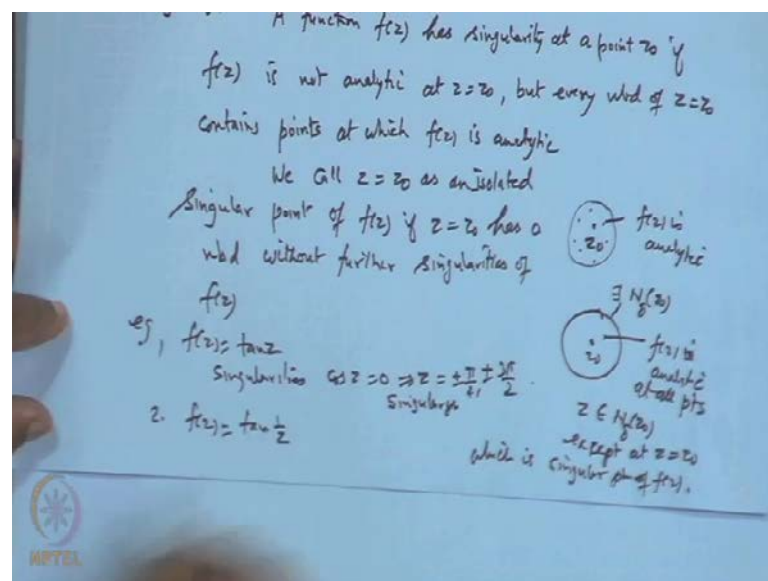 A function f(z) has singularity at a point z0 if
f(z) is not analytic at z=z0, but every nbd of z=z0
contains points at which f(z) is analytic
We call z=z0 as an isolated
Singular point of f(z) if z=z0 has a
nbd without further singularities of
f(z)
z0
f(z) is
analytic
∃ Nδ(z0)
z0
f(z) is
analytic
at all pts
z ∈ Nδ(z0)
except at z=z0
which is singular pt of f(z).
eg, f(z)= tanz
Singularities cos z=0 ⇒ z = ±π/2, ±3π/2.
2. f(z)= tan 1/z
NPTEL